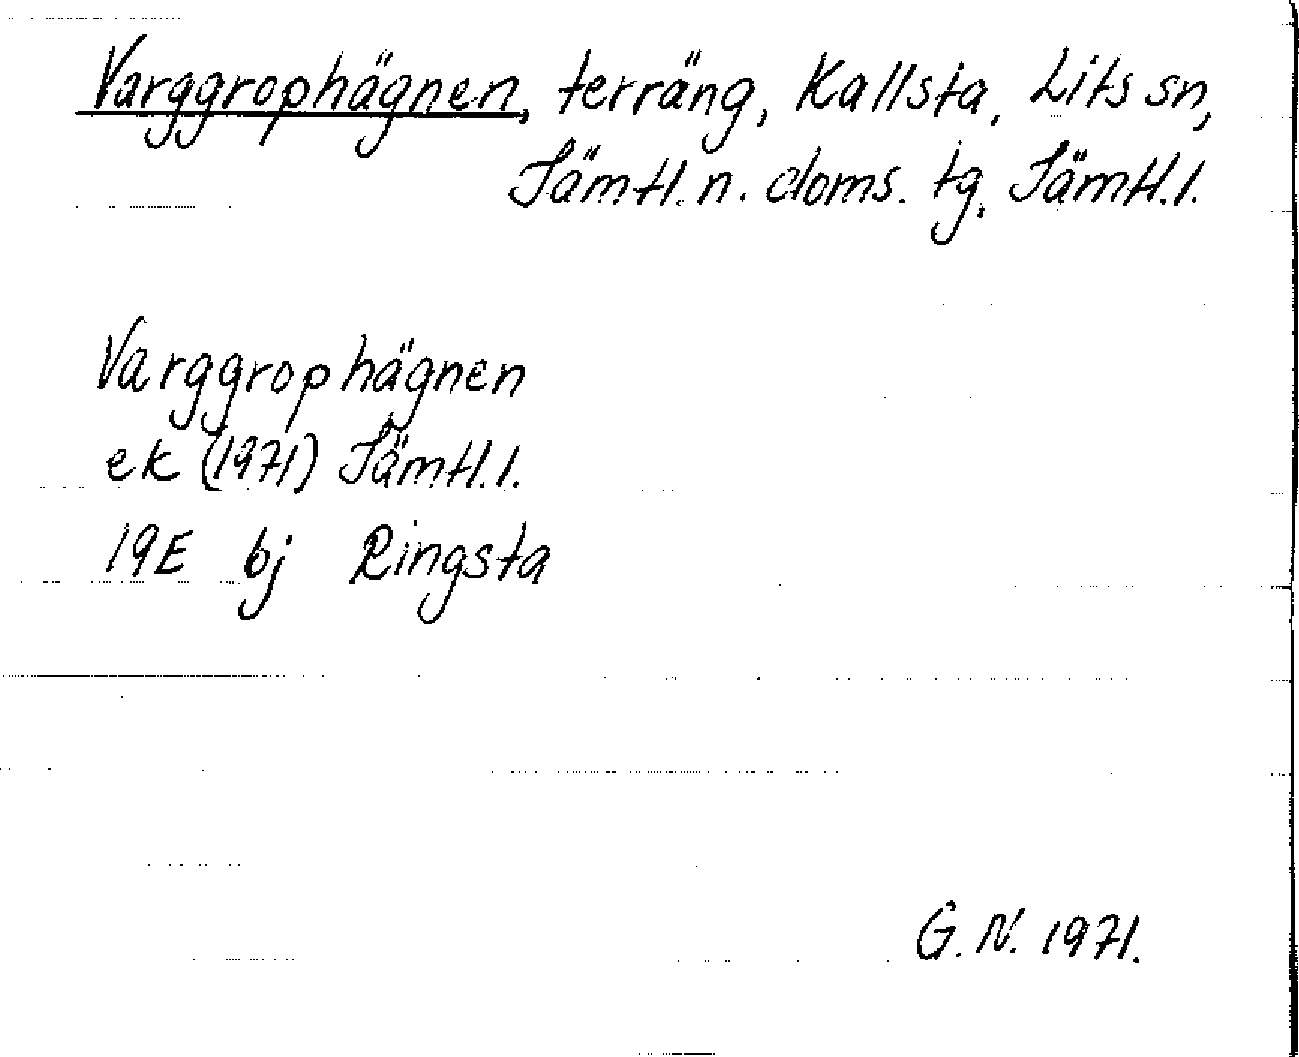 Varggrophägnen, terräng, Kallsta, Lits sn,
Jämtl. n. doms. tg, Jämtl. l.
Varggrophägnen
ek (1971) Jämtl. l.
19E bj Ringsta
G. N. 1971.